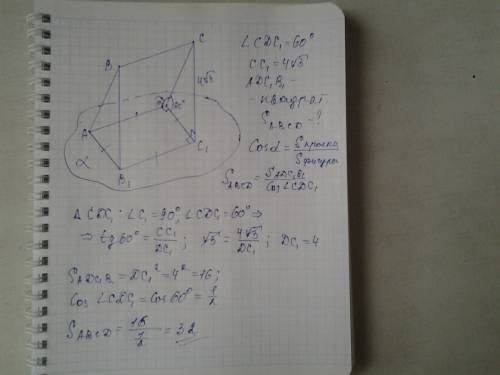 B
C
4√3
D
60°
A
α
B₁
C₁
∠CDC₁=60°
CC₁=4√3
ADC₁B₁ -
- квадрат.
S ABCD - ?
Cosα = Sпроекц / Sфигуры
S ABCD = S ADC₁B₁ / Cos∠CDC₁
Δ CDC₁: ∠C₁=90°, ∠CDC₁=60° ⇒
⇒ tg60° = CC₁/DC₁; √3 = 4√3/DC₁; DC₁=4
S ADC₁B₁ = DC₁² = 4² = 16;
Cos∠CDC₁ = Cos60° = 1/2
S ABCD = 16 / 1/2 = 32